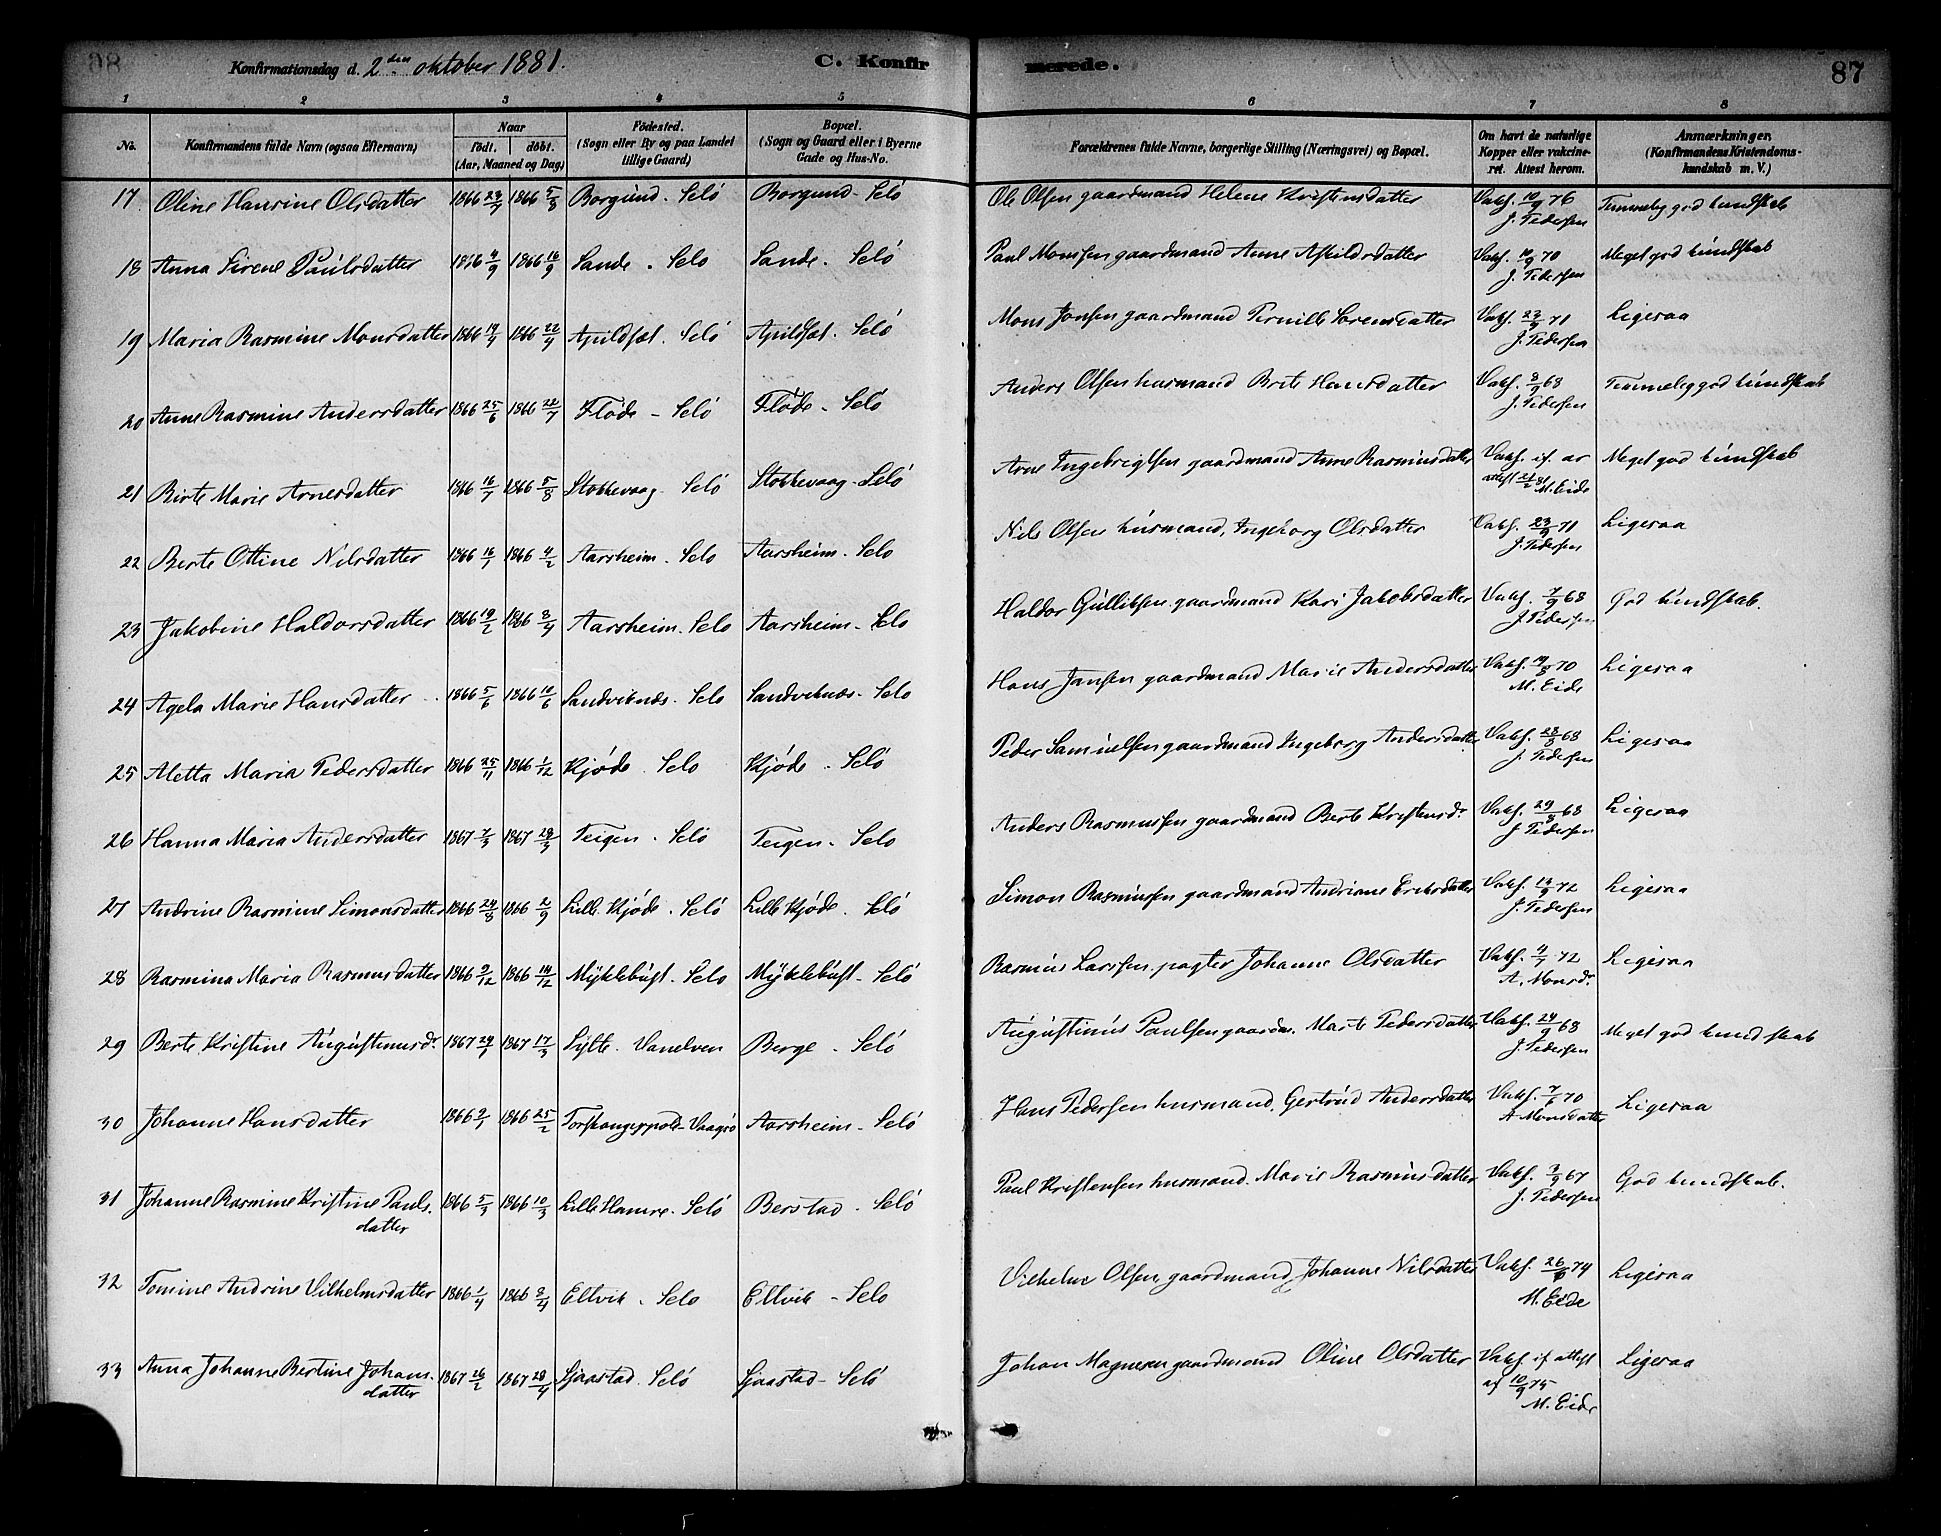 Konfirmationsdag d. 2den oktober 1881. C. Konfirmerede. 87
1 2 3 4 5 6 7 8
No. Konfirmandens fulde Navn (ogsaa Efternavn) Naar født. døbt. (Aar, Maaned og Dag) Födested. (Sogn eller By og paa Landet tillige Gaard) Bopæl. (Sogn og Gaard eller i Byerne Gade og Hus-No. Forældrenes fulde Navne, borgerlige Stilling (Næringsvei) og Bopæl. Om havt de naturlige Kopper eller vakcineret. Attest herom. Anmærkninger. (Konfirmandens Kristendomskundskab m. V.)
17 Oline Hansine Olsdatter 1866 23/7 1866 5/8 Borgund. Selö Borgund- Selö Ole Olsen gaardmand Helene Kristensdatter Vaks. 10/9 76 J. Pedersen Temmelig god kundskab
18 Anna Sirene Paulsdatter 1866 4/9 1866 16/9 Sande. Selo Sande. Selö Paul Monsen gaardmand Anne Askildsdatter Vaks. 10/9 70 J. Pedersen Meget god kundskab
19 Maria Rasmine Monsdatter 1866 14/4 1866 22/4 Apildsæt. Selö Apildsæt. Selö Mons Jonsen gaardmand Pernille Sorensdatter Vaks. 23/9 71 J. Pedersen Ligesaa
20 Anne Rasmine Andersdatter 1866 25/6 1866 22/7 Flöde - Selö Flöde - Selö Anders Olsen husmand Brite Hansdatter Vaks. 8/9 68 J. Pedersen Temmelig god kundskab
21 Birte Marie Arnesdatter 1866 16/7 1866 5/8 Stokkevaag. Selö Stokkevaag - Selö Arne Ingebrigtsen gaardmand Anne Rasmusdatter Vaks. if. attest M. Eide Meget god kundskab
22 Berte Ottine Nilsdatter 1866 16/1 1866 4/2 Aarsheim. Selo Aarsheim. Selo Nils Olsen husmand, Ingeborg Olsdatter Vaks. 23/9 71 J. Pedersen Ligesaa
23 Jakobine Haldorsdatter 1866 19/2 1866 2/4 Aarsheim. Selo Aarsheim - Selo Haldor Gulliksen gaardmand Kari Jakobsdatter Vaks. 7/9 68 J. Pedersen God kundskab.
24 Agela Marie Hansdatter 1866 5/6 1866 10/6 Sandviknæs. Selo Sandviknæs. Selo Hans Jansen gaardmand Marie Andersdatter Vaks. 14/8 70 M. Eide Ligesaa
25 Aletta Maria Pedersdatter 1866 25/11 1866 1/12 Kjöde. Selo Kjöde - Selö Peder Samuelsen gaardmand Ingeborg Andersdatter Vaks. 28/8 68 J. Pedersen Ligesaa
26 Hanna Maria Andersdatter 1867 7/3 1867 24/3 Teigen. Selö Teigen. Selo Anders Rasmussen gaardmand Berte Kristensdr Vaks. 29/8 68 J. Pedersen Ligesaa
27 Andrine Rasmine Simonsdatter 1866 24/8 1866 2/9 Lille Kjöde. Selö Lille Kjöde. Selö Simon Rasmussen gaardmand Andriane Eriksdatter Vaks. 12/9 72 J. Pedersen Ligesaa
28 Rasmina Maria Rasmusdatter 1866 9/12 1866 14/12 Myklebust. Selo Myklebust. Selö Rasmus Larssen, pagter Johanne Olsdatter Vaks. 4/7 72 A. Monsdr Ligesaa
29 Berte Kristine Augustinusdr 1867 24/1 1867 17/3 Lytte. Vanelven Berge - Selö Augustinus Paulsen gaardm. Marte Pedersdatter Vaks. 24/9 68 J. Pedersen Meget god kundskab
30 Johanne Hansdatter 1866 2/1 1866 25/2 Vaagsö Aarsheim - Selö Hans Pedersen husmand. Gertrud Andersdatter Vaks. 7/6 70 A Monsdatter Ligesaa
31 Johanne Rasmine Kristine Pauls.
datter 1866 5/3 1866 10/3 Lille Hamre. Selö Berstad - Selö Paul Kristensen husmand. Marie Rasmusdatter Vaks. 7/9 67 J. Pedersen God kundskab.
32 Tomine Andrine Vilhelmsdatter 1866 1/4 1866 2/4 Ellvik. Selo Ellvik - Selo Vilhelm Olsen gaardmand, Johanne Nilsdatter Vaks. 26/6 74 M. Eide Ligesaa
33 Anna Johanne Bertine Johans.
datter 1867 26/2 1867 28/4 Sjaastad. Selö Sjaastad - Selö Johan Magnesen gaardmand Oline Olsdatter Vaks. if attest af 10/9 75 M. Eide Ligesaa